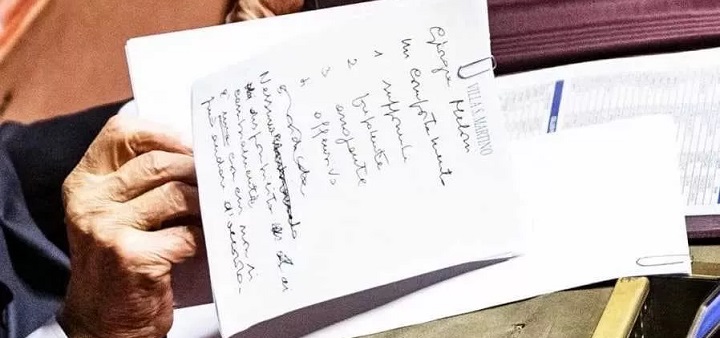 VILLA S. MARTINO
Giorgia Meloni
Un comportamento
1 supponente
2 prepotente
3 arrogante
4 offensivo
Nessuna
disponibilità ai
cambiamenti
È una con cui non si
può andare d'accordo.